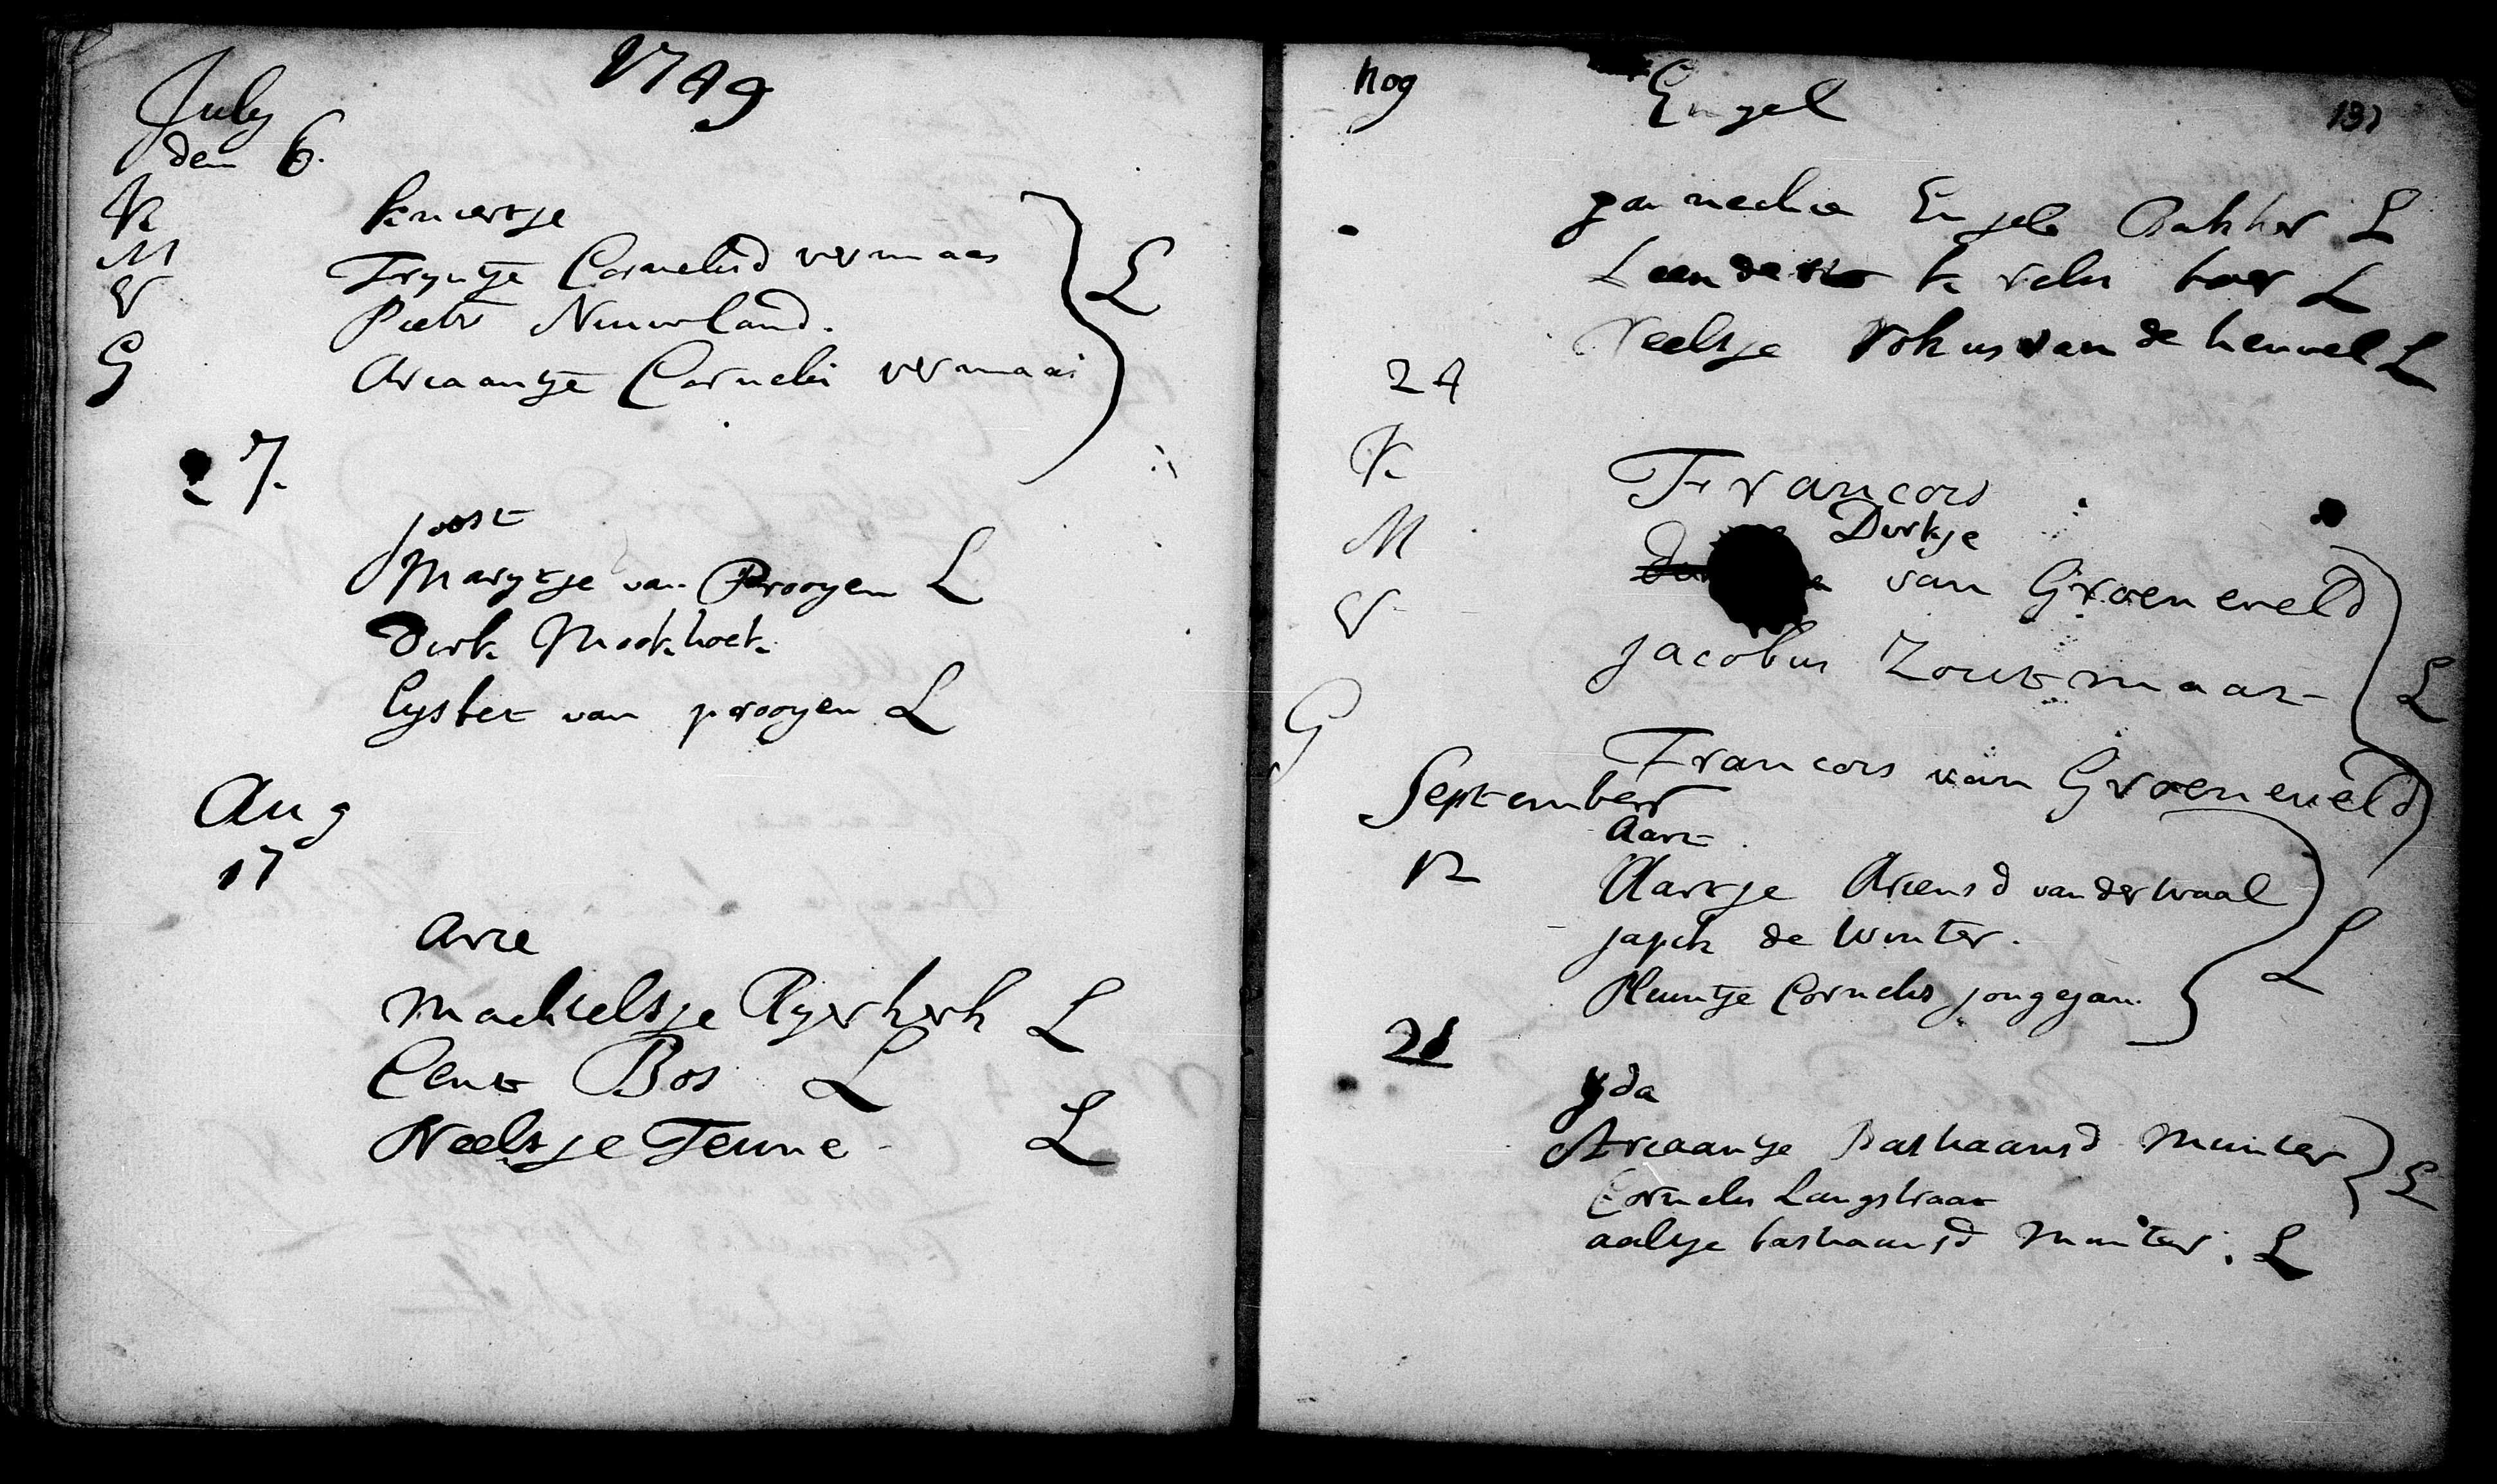 1749
July
den 6.
K
kniertje
M
Tryntje Cornelisd vermaas
L
V
Pieter Nieuwland.
G
Ariaantje Cornelis vermaas
27.
joost
Marytje van Prooyen L
Dirk Mookhoek
Lysbet van prooyen L
Aug
17
Arie
Machieltje Ryerkerk L
Cent Bos L
Neeltje Teune L
nog
Engel
137
jannechie Engels Bakker L
Leendert boer L
Neeltje Rokus van de heuvel L
24
K
Francois
M
Dirkje
van Groeneveld
V
jacobus Zoutmaat
L
G
Francois van Groeneveld
September
Aart
12
Aartje Ariensd van der waal
japik de winter.
L
Pluintje Cornelis jongejan.
21
yda
Ariaantje Bastiaansd Munter
L
Cornelis Langstraat
aaltje bastiaansd Munter. L